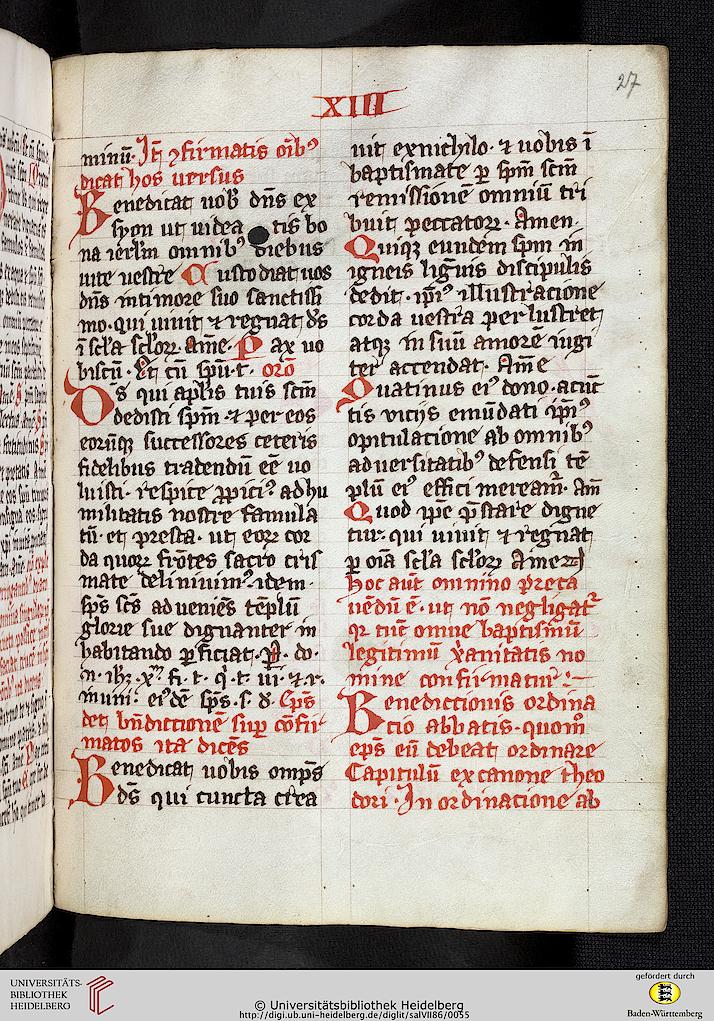 27
XIII
minū· Itē ↄfirmatis oīb⁹
dicat hos versus
Benedicat vob̄ dn̄s ex
syon ut videa tis bo
na ierl̄m omnib⁹ diebus
vite vestre Custodiat uos
dn̄s in timore suo sanctissi
mo· qui viuit ⁊ regnat ds̄
ī scl̄a scl̄oꝝ Amē· Pax uo
biscū· Et cū spū· t· orō
Ds̄ qui apl̄is tuis scm̄
dedisti spm̄· ⁊ per eos
eorūqꝫ successores ceteris
fidelibus tradendū eē uo
luisti· respice ꝓpici⁹ ad hu
militatis nostre famula
tū· et presta· ut eoꝝ cor
da quoꝝ frōtes sacro cris
mate deliniuim⁹· idem·
sps̄ scs̄ adueniēs tēplū
glorie sue dignanter in
habitando ꝑficiat· P· do·
n· ihꝫ· x̄· fi· t· q̄· t· ui· ⁊ r·
in uni· ei⁹dē sps̄· s· d· Eps̄
det bn̄dictionē suꝑ cōfir
matos ita dicēs
Benedicat uobis omps̄
ds̄ qui cuncta crea
uit ex nichilo· ⁊ uobis ī
baptismate ꝑ spm̄ scm̄
remissionē omniū tri
buit peccatoꝝ· Amen·
Quiqꝫ eundem spm̄ in
igneis liguis discipulis
dedit· ip̄i⁹ illustracione
corda uestra perlustret
atqꝫ in suū amorē iugi
ter accendat· Amē
Quatinus ei⁹ dono· acūc
tis vicijs emūdati ip̄i⁹
opitulacione ab omnib⁹
aduersitatib⁹ defensi tē
plū ei⁹ effici meream̄· Am̄
Quod ip̄e p̄stare digne
tur· qui uiuit ⁊ regnat
ꝑ oīa scl̄a scl̄oꝝ Amen
hoc aūt omnino preca
uēdū ē· ut nō negligat̄
qꝛ tūc omne baptismū
legitimū xānitatis no
mine confirmatur·
Benedictionis ordina
cio abbatis· quom̄o
eps̄ eū debeat ordinare
Capitulū ex canone theo
dori· In ordinacione ab
UNIVERSITÄTS-
BIBLIOTHEK
HEIDELBERG
© Universitätsbibliothek Heidelberg
http://digi.ub.uni-heidelberg.de/diglit/salVII86/0055
gefördert durch
Baden-Württemberg